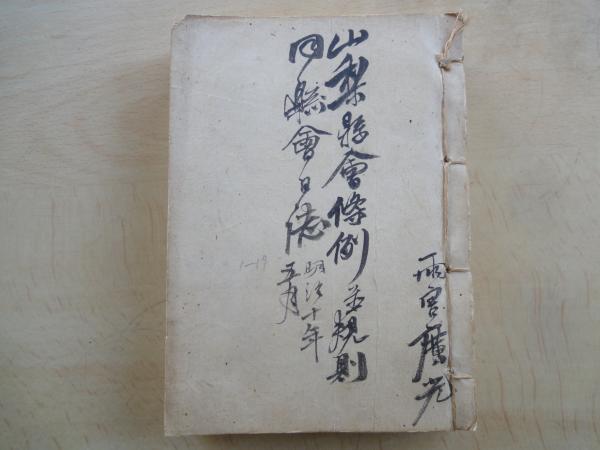 山梨縣會條例並規則
同縣會日誌
明治十年
五月
雨宮廣光
1-19